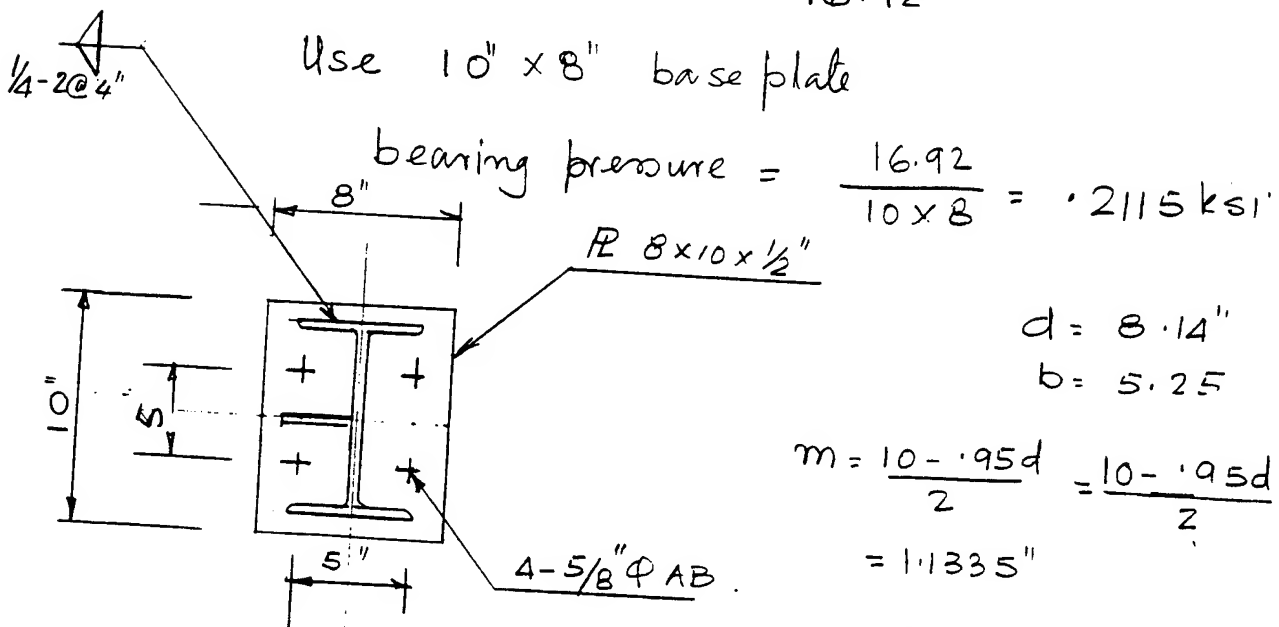 Use 10" x 8" base plate
1/4-2@4"
bearing pressure = 16.92 / 10 x 8 = .2115 ksi
8"
PL 8x10x1/2"
d = 8.14"
b = 5.25
10"
5
m = 10 - .95d / 2 = 10 - .95d / 2
= 1.1335"
5"
4-5/8" Φ AB.